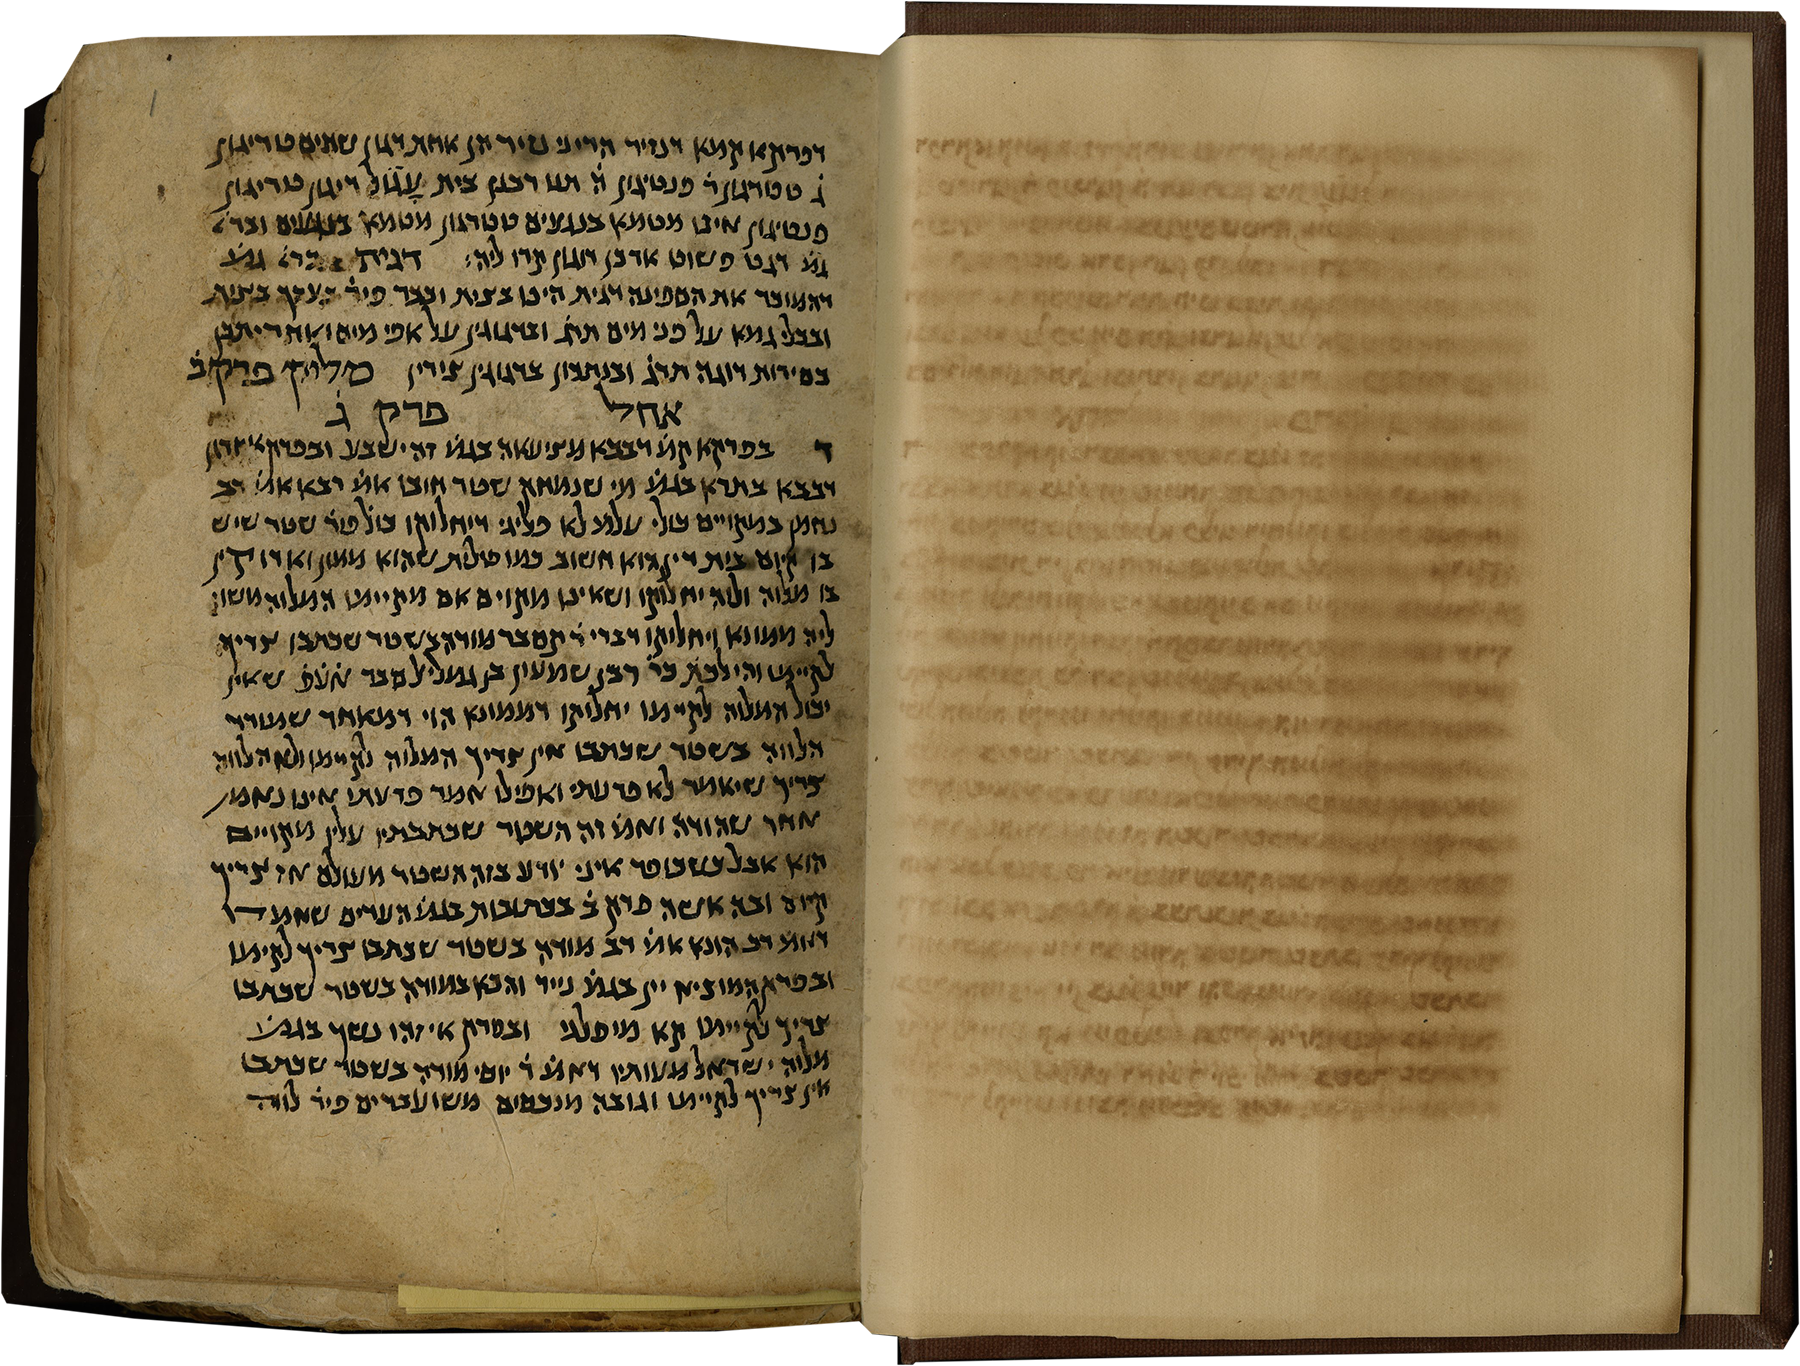 דפרקא קמא דנזיר הריני נזיר הן אחת דגון שתים טריגון
ג̇ טטרגון ד̇ פנטיגון ה̇ תנו רבנן בית עגול דיגון טריגון
פנטיגון אינו מטמא בנגעים טטרגון מטמא בנגעים ובר׳
גמ̇ דגט פשוט אדבן דוגון קרו ליה׃ דגית בר׳ גמ̇
דהמוכר את הספינה דגית היכו בצית וכבר פיר̇ בערך בצית
ובבלי גמא על פני מים תרג̇ וברגוגין על אפי מים ואחריתכן
בסירות דוגה תרג̇ ובנתכון ברגוגין צידין סלוק פרק ב̇
אחל פרק ג̇
ד בפרקא קמ̇ דבבא מציעאה בגמ̇ זה ישבע ובפרקא
דבבא בתרא בגמ̇ מי שנמחק שטר חובו אמ̇ רבא אמ̇ רב
נחמן במקויים כולי עלמ̇ לא פליגי דיחלוקו כול פיר̇ שטר שיש
בו קיום בית דין הוא חשוב כמו טלית שהוא ממון ואדוקין
בו מלוה ולוה יחלוקו ושאינו מקוים אם מקיימו המלוה משוי
ליה ממונא ויחליקו דברי ר̇ קסבר מודה בשטר שכתבו צריך
לקיימו והילכת̇ כר̇ רבן שמעון בן גמליל סבר אע̇פ̇ שאין
יכול המלוה לקיימו יחליקו דממונא הוי דמאחר שמודר
הלווה בשטר שכתבו אין צריך המלוה לקיימו ולא הלווה
צריך שיאמר לא פרעתי ואפילו אמר פרעתי אינו נאמן
אחר שהודה ואמ̇ זה השטר שכתבתיו עלין מקויים
הוא אבל כשכופר איני יודע בזה השטר מעולם אז צריך
קיום ובה אשה פרק ב̇ בכתובות בגמ̇ העדים שאמרו
דאמ̇ רב הונא אמ̇ רב̇ מודה בשטר שכתבו צריך לקיימו
ובפרק המוציא יין בגמ̇ נייר והכא במודה בשטר שכתבו
צריך לקיימו קא מיפלגי ובפרק איזהו נשך בגמ̇
מלוה ישראל מעותיו דאמ̇ ר̇ יוסי מודה בשטר שכתבו
אין צריך לקיימו וגובה מנכסים משועבדים פיר̇ לוה